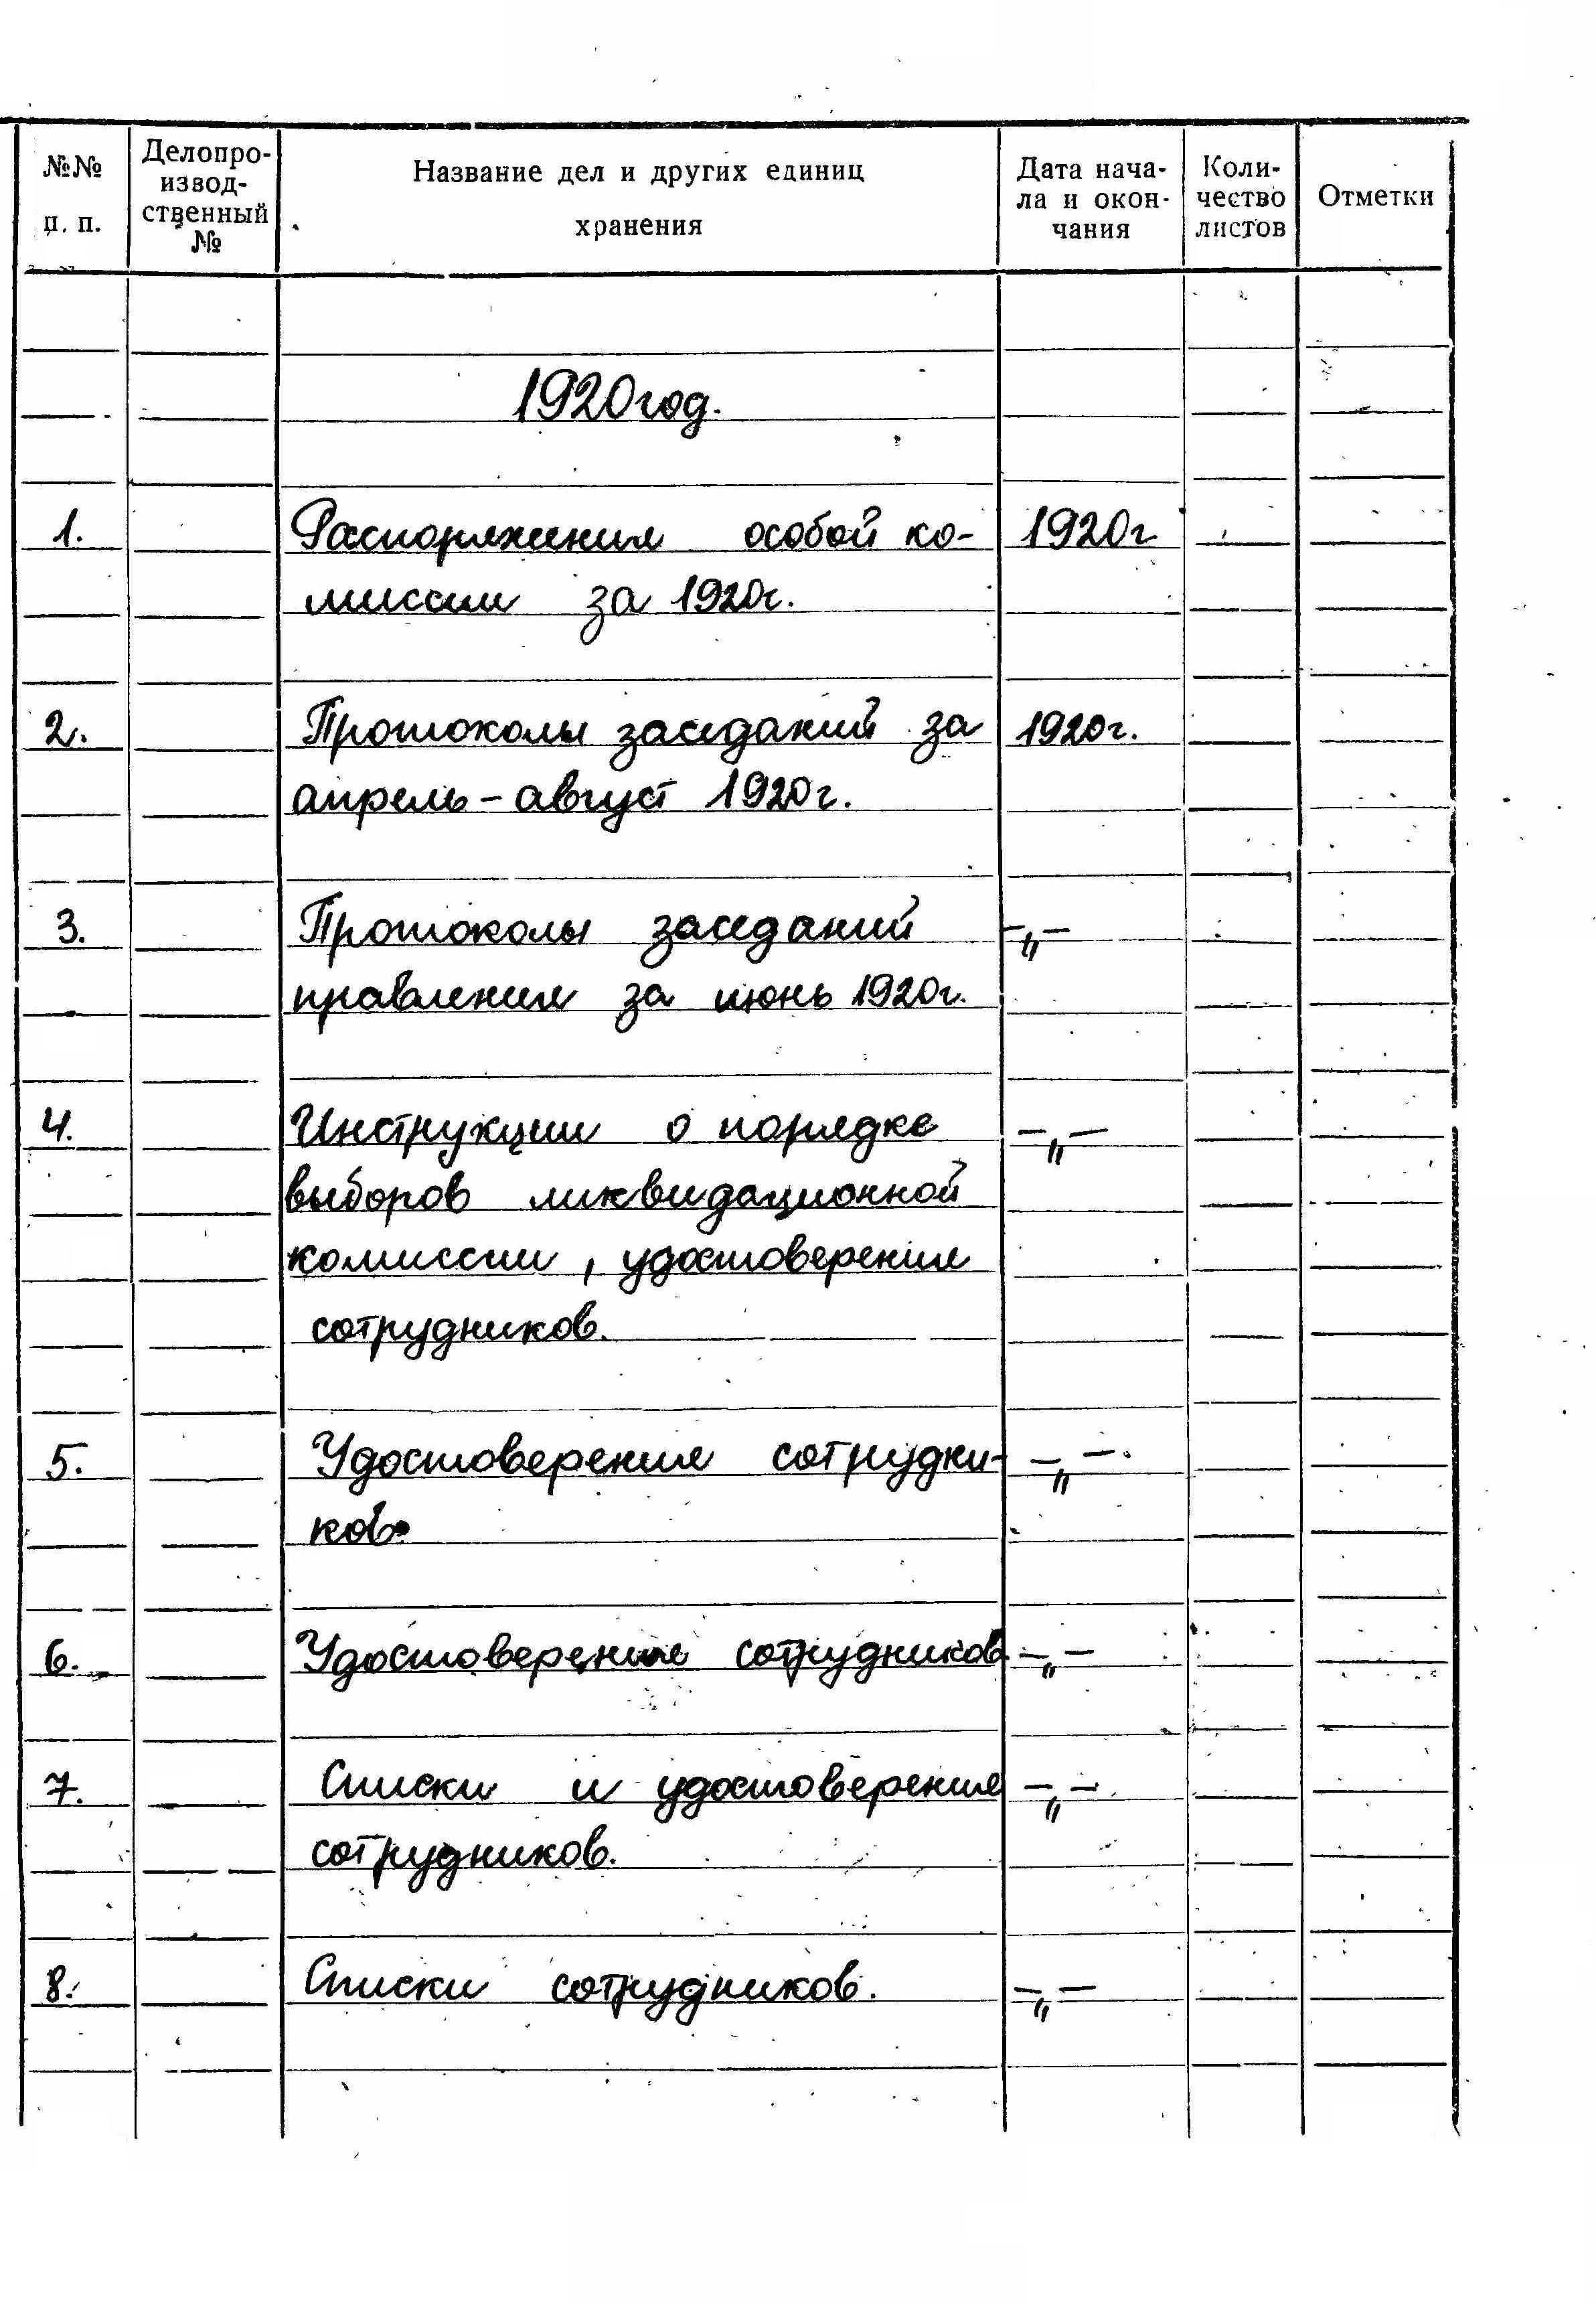 №№ п. п.
Делопро-
извод-
ственный
№
Название дел и других единиц
хранения
Дата нача-
ла и окон-
чания
Коли-
чество
листов
Отметки
1920 год.
1. Распоряжения особой ко- 1920г
миссии за 1920г.
2. Протоколы заседаний за 1920г.
апрель – август 1920г.
3. Протоколы заседаний –„–
правления за июнь 1920г.
4. Инструкции о порядке –„–
выборов ликвидационной
комиссии, удостоверения
сотрудников.
5. Удостоверения сотрудни- –„–
ков.
6. Удостоверения сотрудников. –„–
7. Списки и удостоверения –„–
сотрудников.
8. Списки сотрудников. –„–